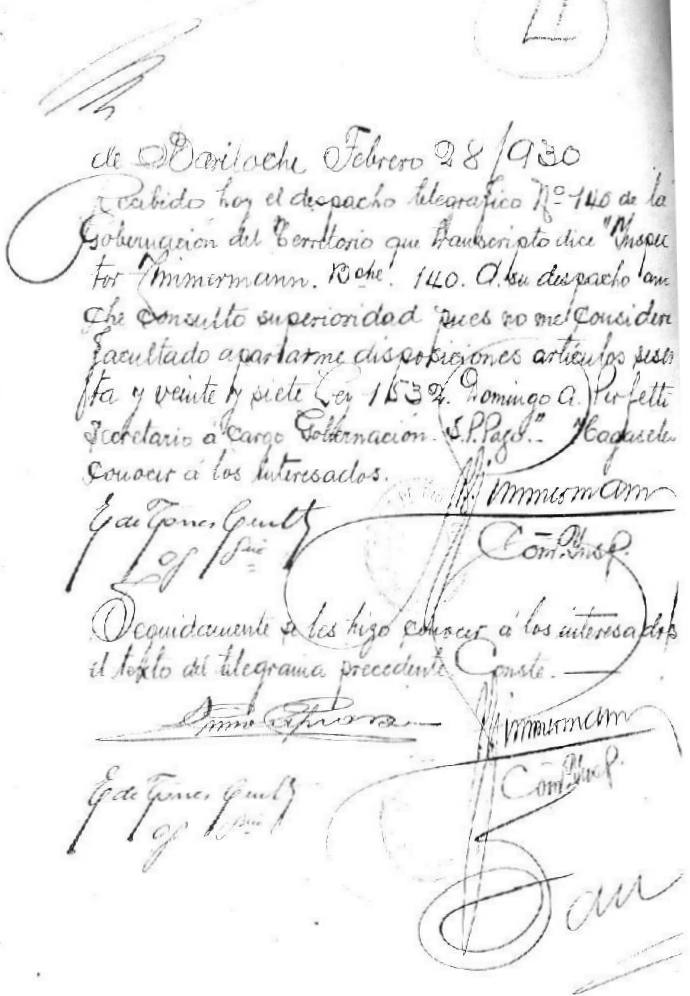 de Bariloche Febrero 28/930
Recibido hoy el despacho telegrafico Nº 140 de la
Gobernación del Territorio que transcripto dice "Inspec
tor Zimmermann. Bche. 140. A su despacho an
che consulto superioridad pues no me consider
facultado apartarme disposiciones artículos sesen
ta y veinte y siete Ley 1532. Domingo A. Perfetti
Secretario á cargo Gobernación. S.P.Pago". Hagaseles
conocer á los interesados.
Zimmermann
E de Torres
Com. Insp.
Seguidamente se les hizo conocer á los interesados
el texto del telegrama precedente Conste.
Zimmermann
Com. Insp.
E de Torres